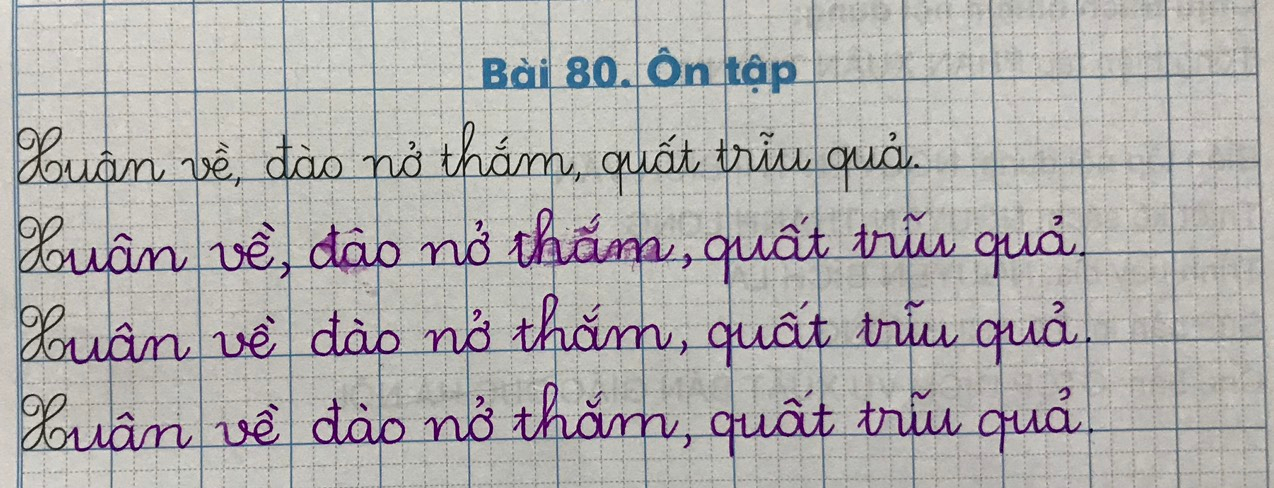 Bài 80. Ôn tập
Xuân về, đào nở thắm, quất trĩu quả.
Xuân về, đào nở thắm, quất trĩu quả.
Xuân về đào nở thắm, quất trĩu quả.
Xuân về đào nở thắm, quất trĩu quả.